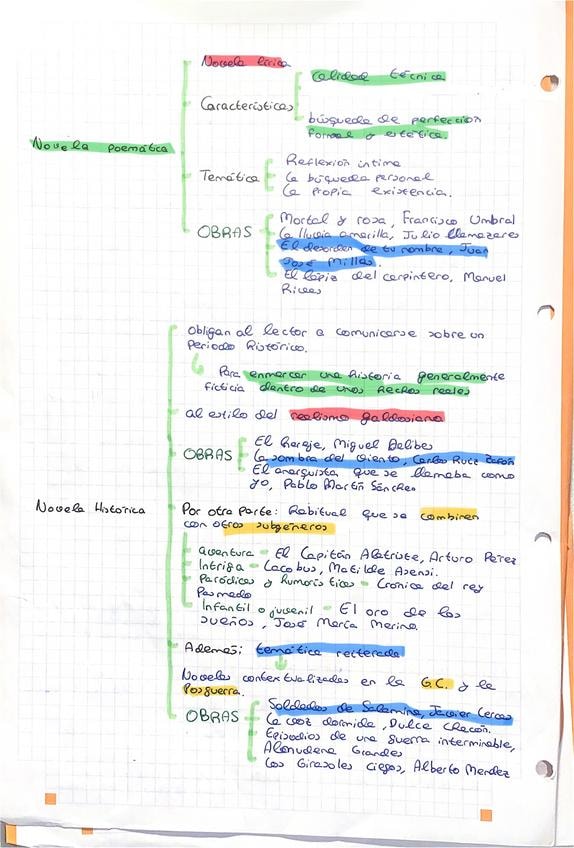 Novela lírica
calidad técnica
Características
búsqueda de perfección
formal y estética.
Novela poemática
Reflexión íntima
Temática
la búqueda personal
la propia existencia.
OBRAS
Mortal y rosa, Francisco Umbral
la lluvia amarilla, Julio llamazares
El desorden de tu nombre, Juan
José Millás.
El lápiz del carpintero, Manuel
Rivas
obligan al lector a comunicarse sobre un
Periodo histórico.
Para enmarcar una historia generalmente
ficticia dentro de unos hechos reales
al estilo del realismo galdosiano
OBRAS
El hereje, Miguel Delibes
la sombra del viento, Carlos Ruiz Zafón
El anarquista que se llamaba como
yo, Pablo Martín Sánchez
Novela histórica
Por otra parte: habitual que se combinen
con otros subgéneros
aventura = El Capitán Alatriste, Arturo Pérez
Intriga = Iacobus, Matilde Asensi.
Paródicos y humorísticos = Crónica del rey
Pasmado
Infantil o juvenil = El oro de los
sueños, José María Merino.
Además: temática reiterada
Novelas contextualizadas en la G.C. y la
Posguerra.
OBRAS
Soldados de Salamina, Javier Cercas
la voz dormida, Dulce Chacón.
Episodios de una guerra interminable,
Almudena Grandes
Los Girasoles ciegos, Alberto Mendez